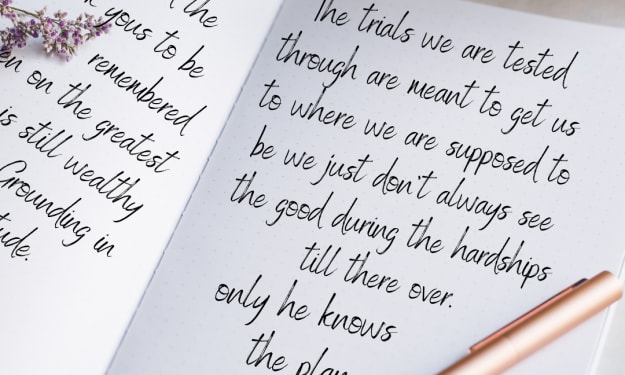 the
yous to be
remembered
on the greatest
is still wealthy
Grounding in
ude.
The trials we are tested
through are meant to get us
to where we are supposed to
be we just don't always see
the good during the hardships
till there over.
only he knows
the plan